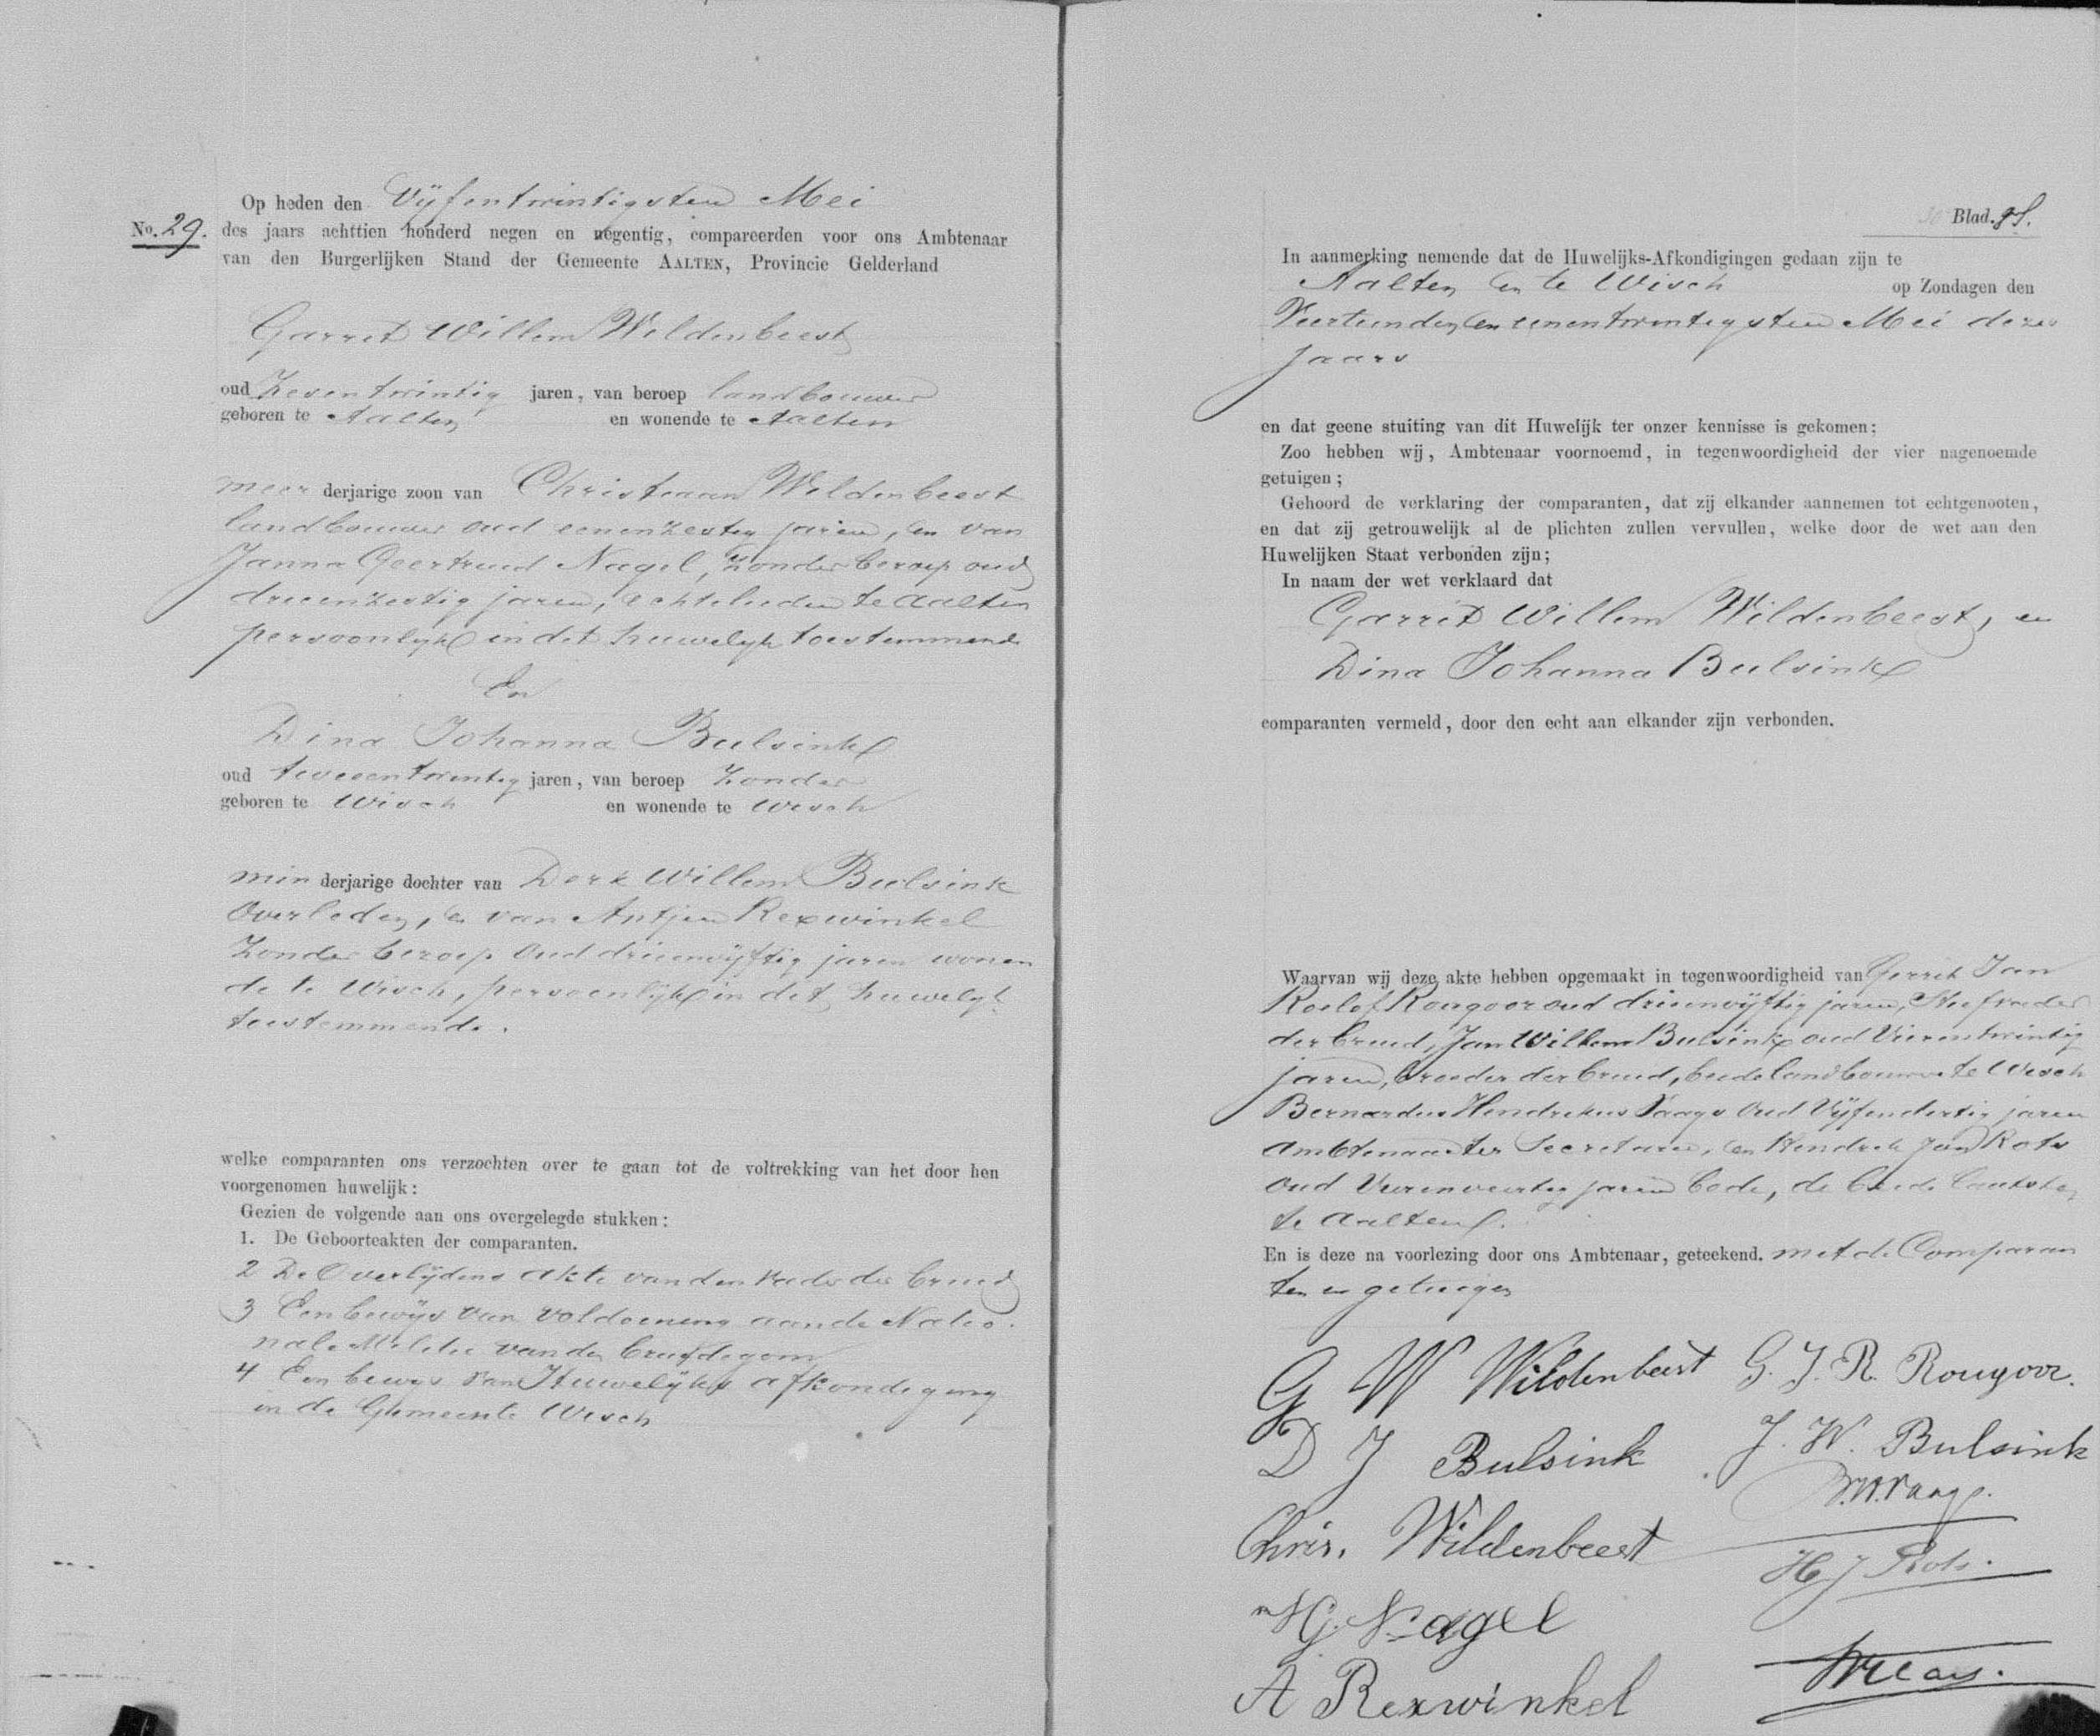 Op heden den Vijfentwintigsten Mei
No. 29. des jaars achttien honderd negen en negentig, compareerden voor ons Ambtenaar
van den Burgerlijken Stand der Gemeente AALTEN, Provincie Gelderland
Garrit Willem Wildenbeest
oud Zesentwintig jaren, van beroep landbouwer
geboren te Aalten en wonende te Aalten
meer derjarige zoon van Christiaan Wildenbeest
landbouwer oud eenenzestig jaren, en van
Janna Geertruid Nagel, zonder beroep oud
drieenzestig jaren, echtelieden te Aalten
persoonlijk in dit huwelijk toestemmende
En
Dina Johanna Bulsink
oud tweeentwintig jaren, van beroep Zonder
geboren te Wisch en wonende te Wisch
min derjarige dochter van Derk Willem Bulsink
Overleden, en van Antjen Rexwinkel
Zonder beroep oud drieenvijftig jaren wonen
de te Wisch, persoonlijk in dit huwelijk
toestemmende.
welke comparanten ons verzochten over te gaan tot de voltrekking van het door hen
voorgenomen huwelijk:
Gezien de volgende aan ons overgelegde stukken:
1. De Geboorteakten der comparanten.
2 De Overlijdens akte van den vader der bruid
3 Een bewijs van voldoening aan de Natio-
nale Militie van den bruidegom
4 Een bewijs van Huwelijks afkondiging
in de Gemeente Wisch
Blad.
In aanmerking nemende dat de Huwelijks-Afkondigingen gedaan zijn te
Aalten en te Wisch op Zondagen den
Veertienden en eenentwintigsten Mei dezes
jaars
en dat geene stuiting van dit Huwelijk ter onzer kennisse is gekomen;
Zoo hebben wij, Ambtenaar voornoemd, in tegenwoordigheid der vier nagenoemde
getuigen;
Gehoord de verklaring der comparanten, dat zij elkander aannemen tot echtgenooten,
en dat zij getrouwelijk al de plichten zullen vervullen, welke door de wet aan den
Huwelijken Staat verbonden zijn;
In naam der wet verklaard dat
Garrit Willem Wildenbeest, en
Dina Johanna Bulsink
comparanten vermeld, door den echt aan elkander zijn verbonden.
Waarvan wij deze akte hebben opgemaakt in tegenwoordigheid van Gerrit Jan
Roelof Rougoor oud drieenvijftig jaren, Stiefvader
der bruid, Jan Willem Bulsink oud Vierentwintig
jaren, broeder der bruid, beide landbouwer te Wisch
Bernardus Hendrikus Vaags oud Vijfendertig jaren
ambtenaar ter Secretarie, en Hendrik Jan Rots
oud Vierenveertig jaren bode, de beide laatsten
te Aalten.
En is deze na voorlezing door ons Ambtenaar, geteekend. met de Comparan
ten en getuigen
G W Wildenbeest G. J. R. Rougoor.
D J Bulsink J. W. Bulsink
B.H. Vaags.
Chris. Wildenbeest
H J Rots.
G. Nagel
A Rexwinkel